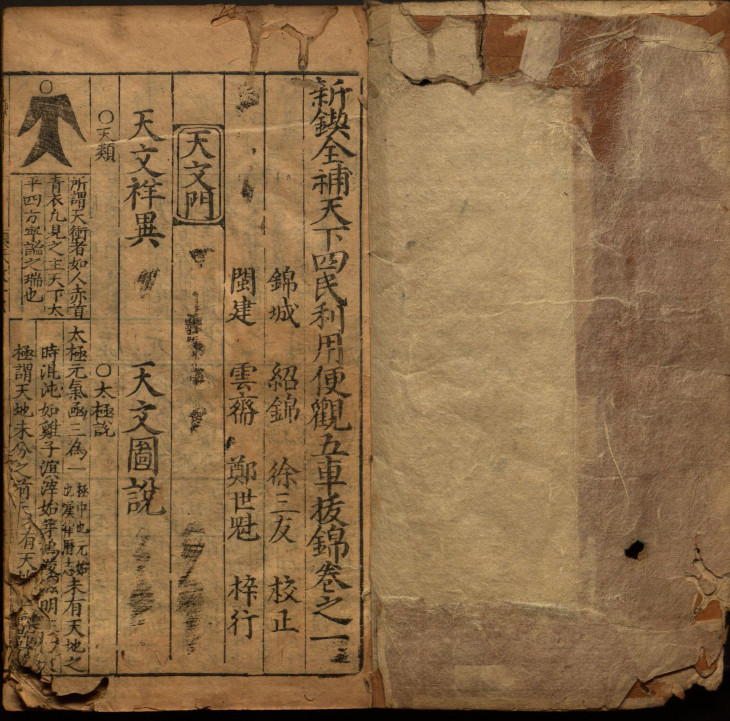 新鍥全補天下四民利用便觀五車拔錦卷之一
錦城 紹錦 徐三友 校正
閩建 雲齋 鄭世魁 梓行
天文門
天文祥異
天文圖說
○天類
所謂天衝者如人赤首
青衣九見之主天下太
平四方寧謐之瑞也
○太極說
太極元氣函三為一極中也元始未有天地之
時混沌如雞子溟涬始
極謂天地未分之前